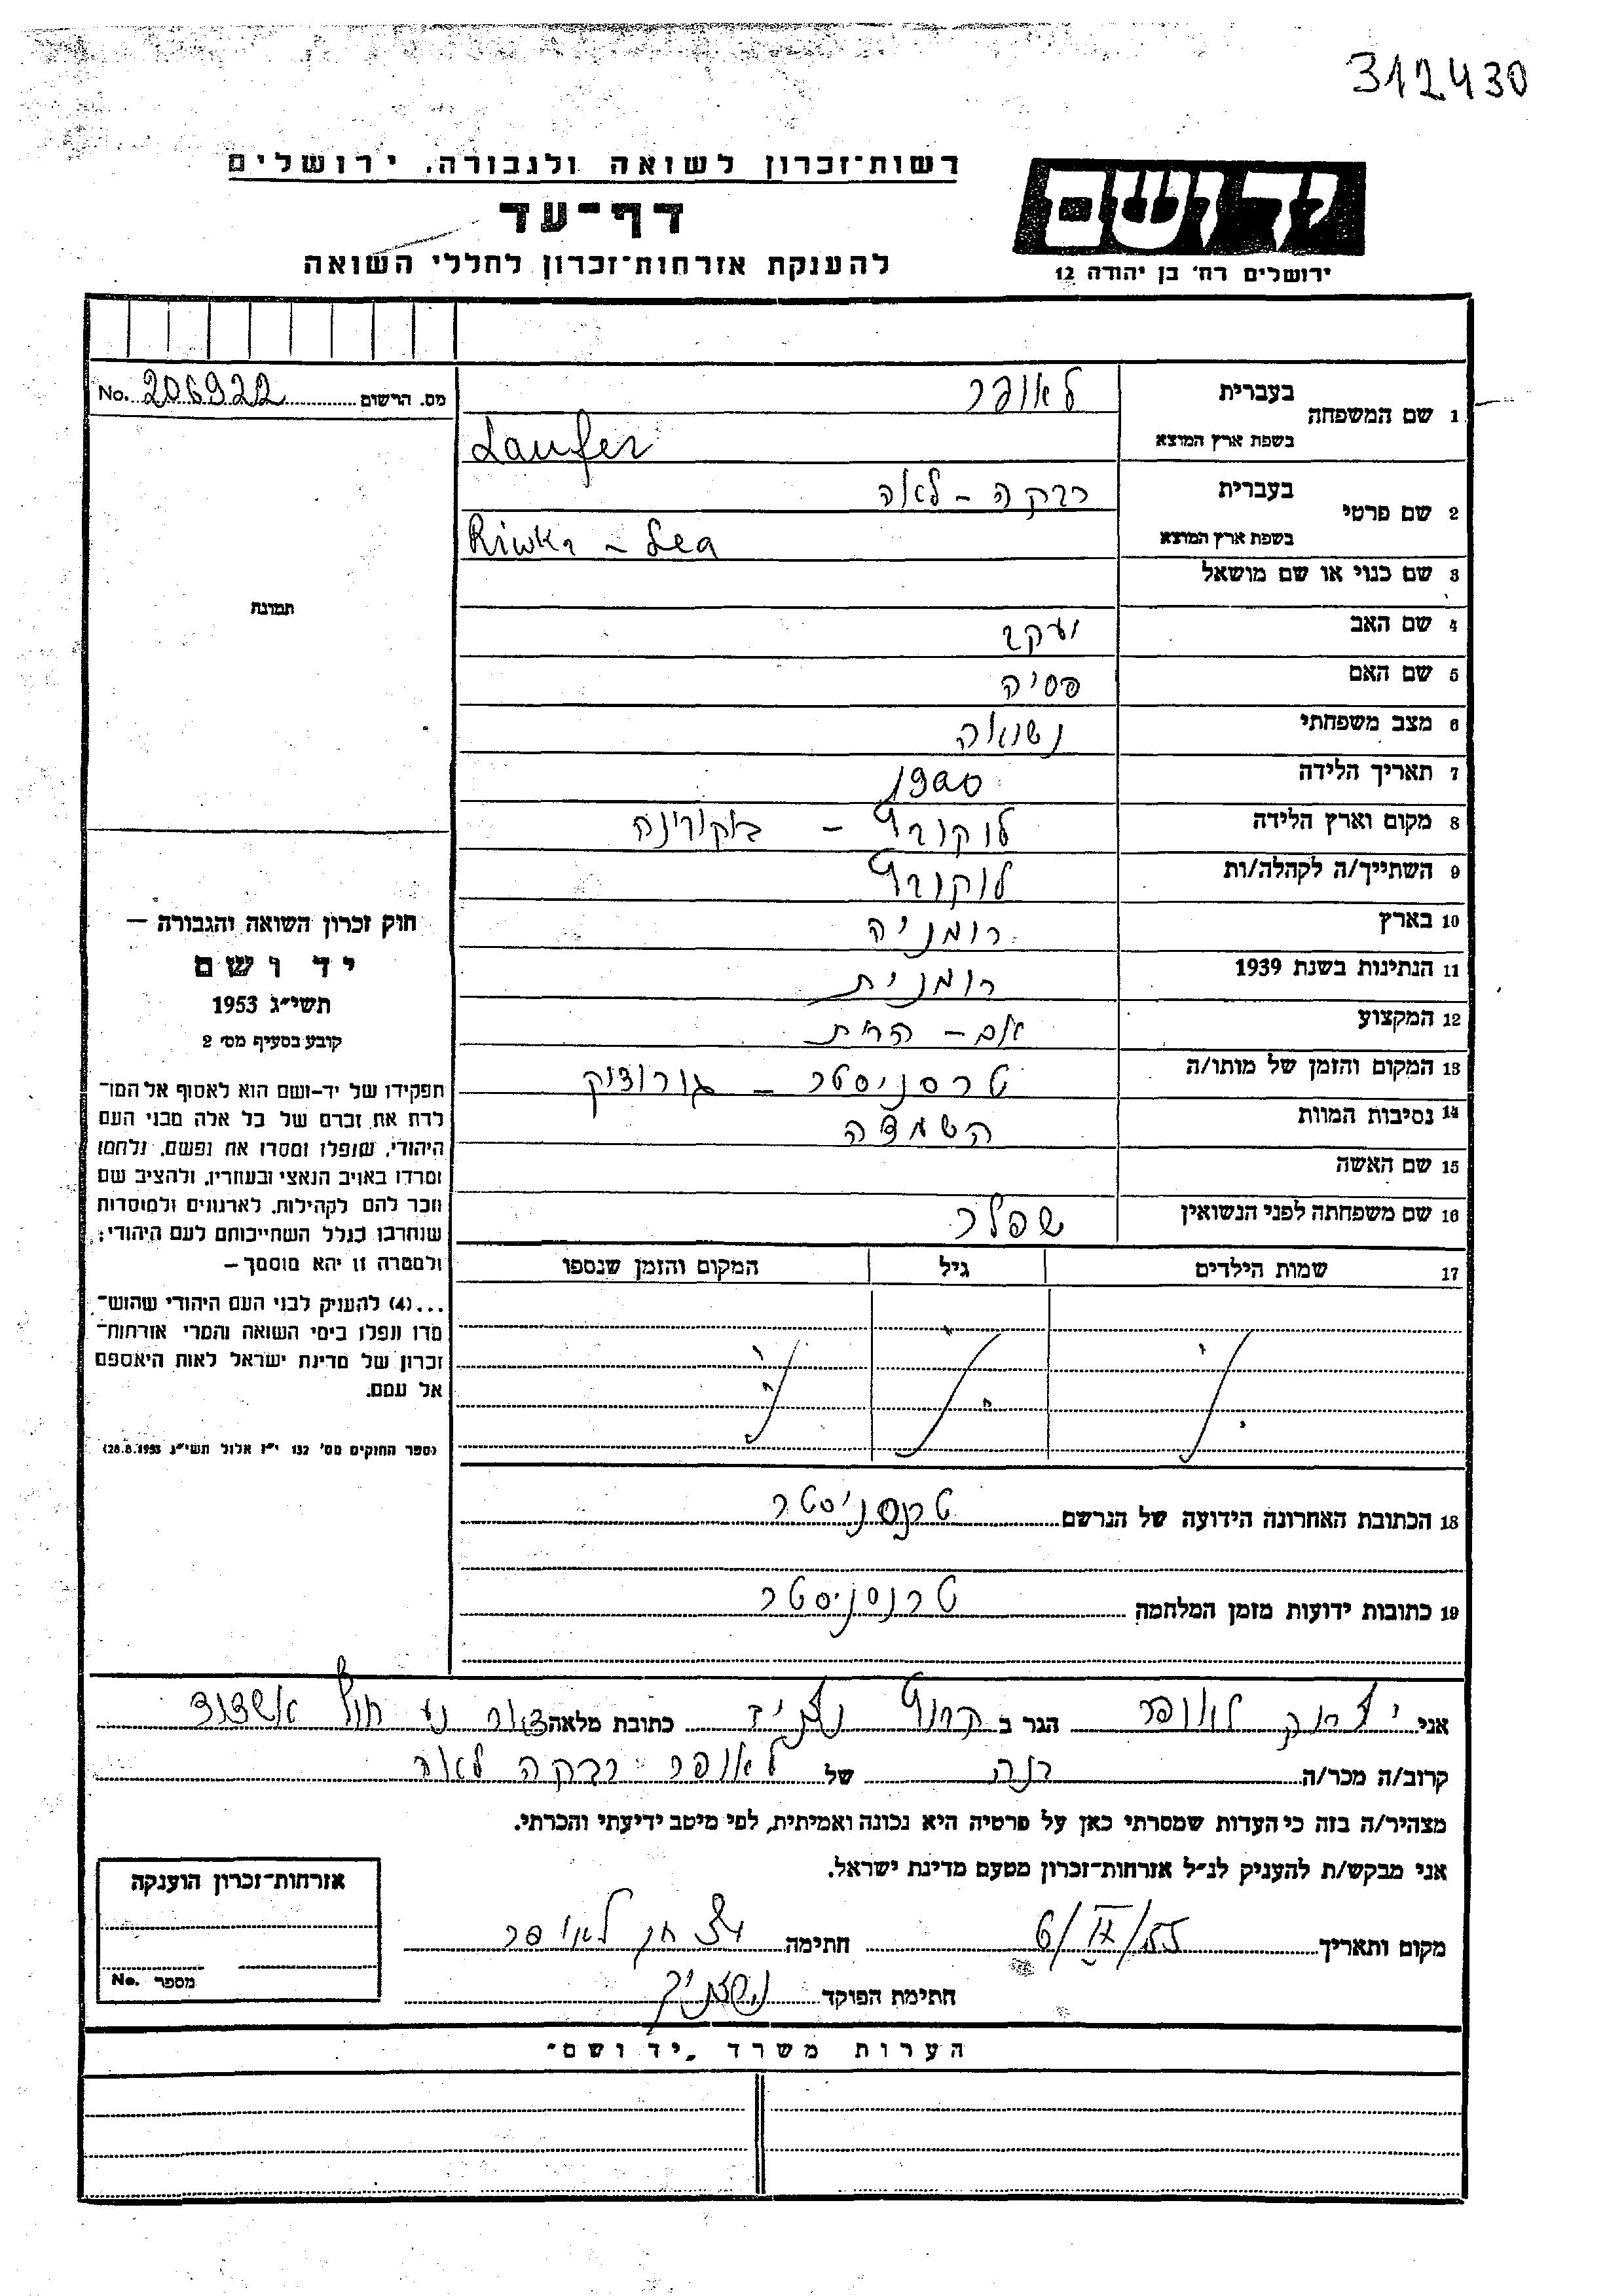 312430
רשות־זכרון לשואה ולגבורה, ירושלים
דף־עד
להענקת אזרחות־זכרון לחללי השואה
יד ושם
ירושלים רח' בן יהודה 12
מס. הרשום 206922 No.
תמונה
1 שם המשפחה בעברית לאופר
בשפת ארץ המוצא Laufer
2 שם פרטי בעברית רבקה - לאה
בשפת ארץ המוצא Riwka - Lea
3 שם כנוי או שם מושאל
4 שם האב יעקב
5 שם האם פסיה
6 מצב משפחתי נשואה
7 תאריך הלידה 1900
8 מקום וארץ הלידה לוקובץ - בוקובינה
9 השתייך/ה לקהלה/ות לוקובץ
10 בארץ רומניה
11 הנתינות בשנת 1939 רומנית
12 המקצוע אם - הבית
13 המקום והזמן של מותו/ה טרסניסטר -
14 נסיבות המוות השמדה
15 שם האשה
16 שם משפחתה לפני הנשואין שפלר
17 שמות הילדים גיל המקום והזמן שנספו
18 הכתובת האחרונה הידועה של הנרשם טרנסניסטר
19 כתובות ידועות מזמן המלחמה טרנסניסטר
חוק זכרון השואה והגבורה —
יד ושם
תשי״ג 1953
קובע בסעיף מס' 2
תפקידו של יד-ושם הוא לאסוף אל המו־
לדת את זכרם של כל אלה מבני העם
היהודי, שנפלו ומסרו את נפשם, נלחמו
ומרדו באויב הנאצי ובעוזריו, ולהציב שם
וזכר להם לקהילות, לארגונים ולמוסדות
שנחרבו בגלל השתייכותם לעם היהודי;
ולמטרה זו יהא מוסמך—
...(4) להעניק לבני העם היהודי שהוש־
מדו ונפלו בימי השואה והמרי אזרחות־
זכרון של מדינת ישראל לאות היאספם
אל עמם.
(ספר החוקים מס' 132 י״ז אלול תשי״ג 28.8.1953)
אני יצחק לאופר הגר ב כתובת מלאה אשדוד
קרוב/ה מכר/ה בנה של לאופר רבקה לאה
מצהיר/ה בזה כי העדות שמסרתי כאן על פרטיה היא נכונה ואמיתית, לפי מיטב ידיעתי והכרתי.
אני מבקש/ת להעניק לנ״ל אזרחות־זכרון מטעם מדינת ישראל.
מקום ותאריך 6/IX/55 חתימה יצחק לאופר
חתימת הפוקד
אזרחות־זכרון הוענקה
מספר No.
הערות משרד „יד ושם״